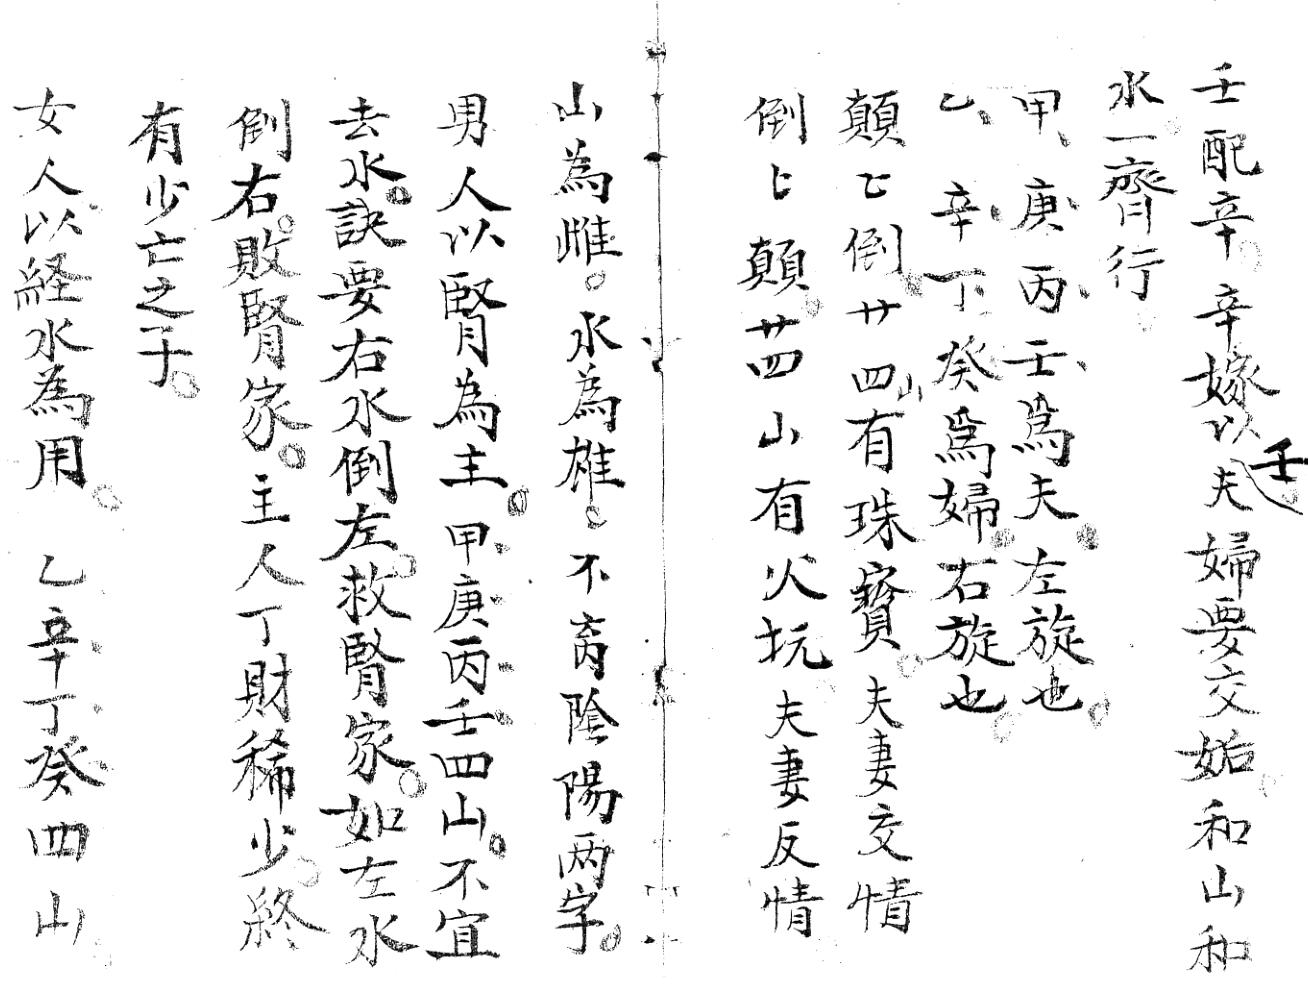 壬配辛辛嫁以壬夫婦要交姤和山和
水一齊行
甲庚丙壬爲夫左旋也
乙辛丁癸爲婦右旋也
顛乜倒廿四山有珠寳夫妻交情
倒上顛廿四山有火坑夫妻反情
山為雌水為雄不离陰陽两字
男人以腎為主甲庚丙壬四山不宜
去水訣要右水倒左救腎家如左水
倒右敗腎家主人丁財稀少終
有少亡之子
女人以経水為用乙辛丁癸四山